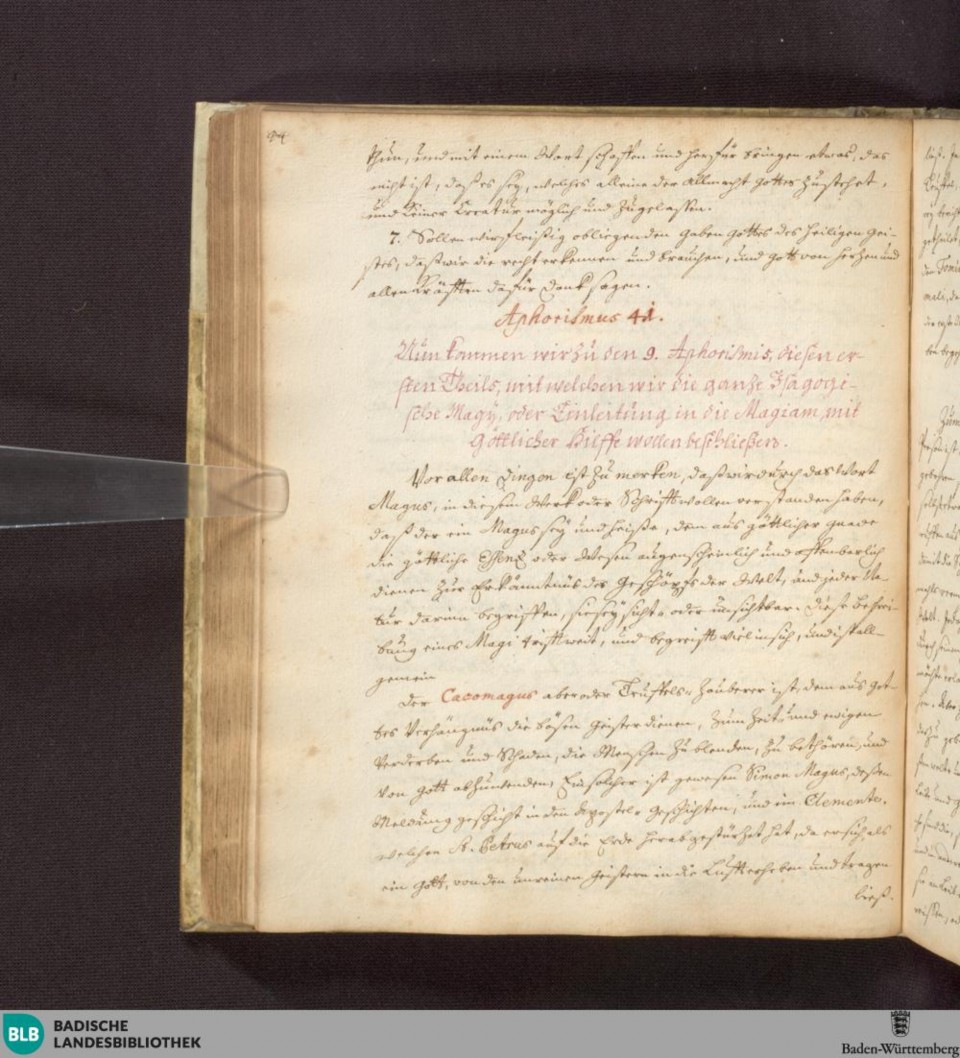 thun, und mit einem Wort schaffen und herfür bringen etwas, das
nicht ist, daß es sey, welches alleine der Allmacht Gottes zustehet,
und keiner Creatur möglich und zugelassen.
7. Sollen wir fleißig obliegen den Gaben Gottes des Heiligen Gei-
stes, daß wir die recht erkennen und brauchen, und Gott von Herzen und
allen Kräfften dafür Dank sagen.
Aphorismus 41.
Nun kommen wir zu den 9. Aphorismis, diesen er-
sten Theils, mit welchen wir die ganze Isagogi-
sche Magy, oder Einleitung in die Magiam, mit
Göttlicher Hilffe wollen beschließen.
Vor allen Dingen ist zu merken, daß wir durch das Wort
Magus, in diesem Werk oder Schrifft wollen verstanden haben,
daß der ein Magus sey und heiße, dem aus göttlicher gnade
die göttliche Essenz oder Wesen augenscheinlich und offenbarlich
dienen zur Erkänntnüs des Geschöpfs der Welt, und jeder Na-
tur darinn begriffen, sie sey sicht- oder unsichtbar. Diese Beschrei-
bung eines Magi trifft weit, und begreifft viel in sich, und ist all-
gemein
Der Cacomagus aber oder Teuffels-Zauberer ist, dem aus Got-
tes Verhängnüs die bösen Geister dienen, zum Zeit- und ewigen
Verderben und Schaden, die Menschen zu blenden, zu bethören, und
von Gott abzuwenden, Ein solcher ist gewesen Simon Magus, deßen
Meldung geschicht in den Apostel-Geschichten, und im Clemente,
welchen S. Petrus auf die Erde herabgestürzet hat, da er sich als
ein Gott, von den unreinen Geistern in die Lufft erheben und tragen
ließ.
BLB
BADISCHE
LANDESBIBLIOTHEK
Baden-Württemberg